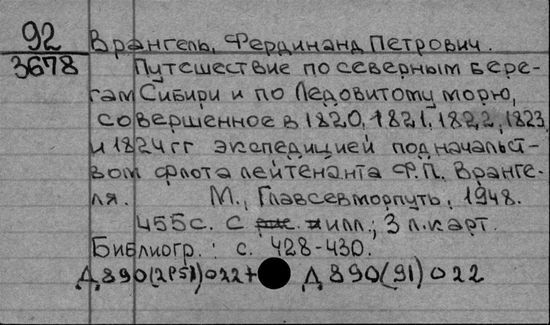 92 Врангель, Фердинанд Петрович.
3678 Путешествие по северным бере-
гам Сибири и по Ледовитому морю,
совершенное в 1820, 1821, 1822, 1823
и 1824 гг экспедицией под начальст-
вом флота лейтенанта Ф.П. Вранге-
ля. М., Главсевморпуть, 1948.
455с. с рис. и илл.; 3 л. карт.
Библиогр.: с. 428-430.
Д890(2Р51)022+ Д890(91)022